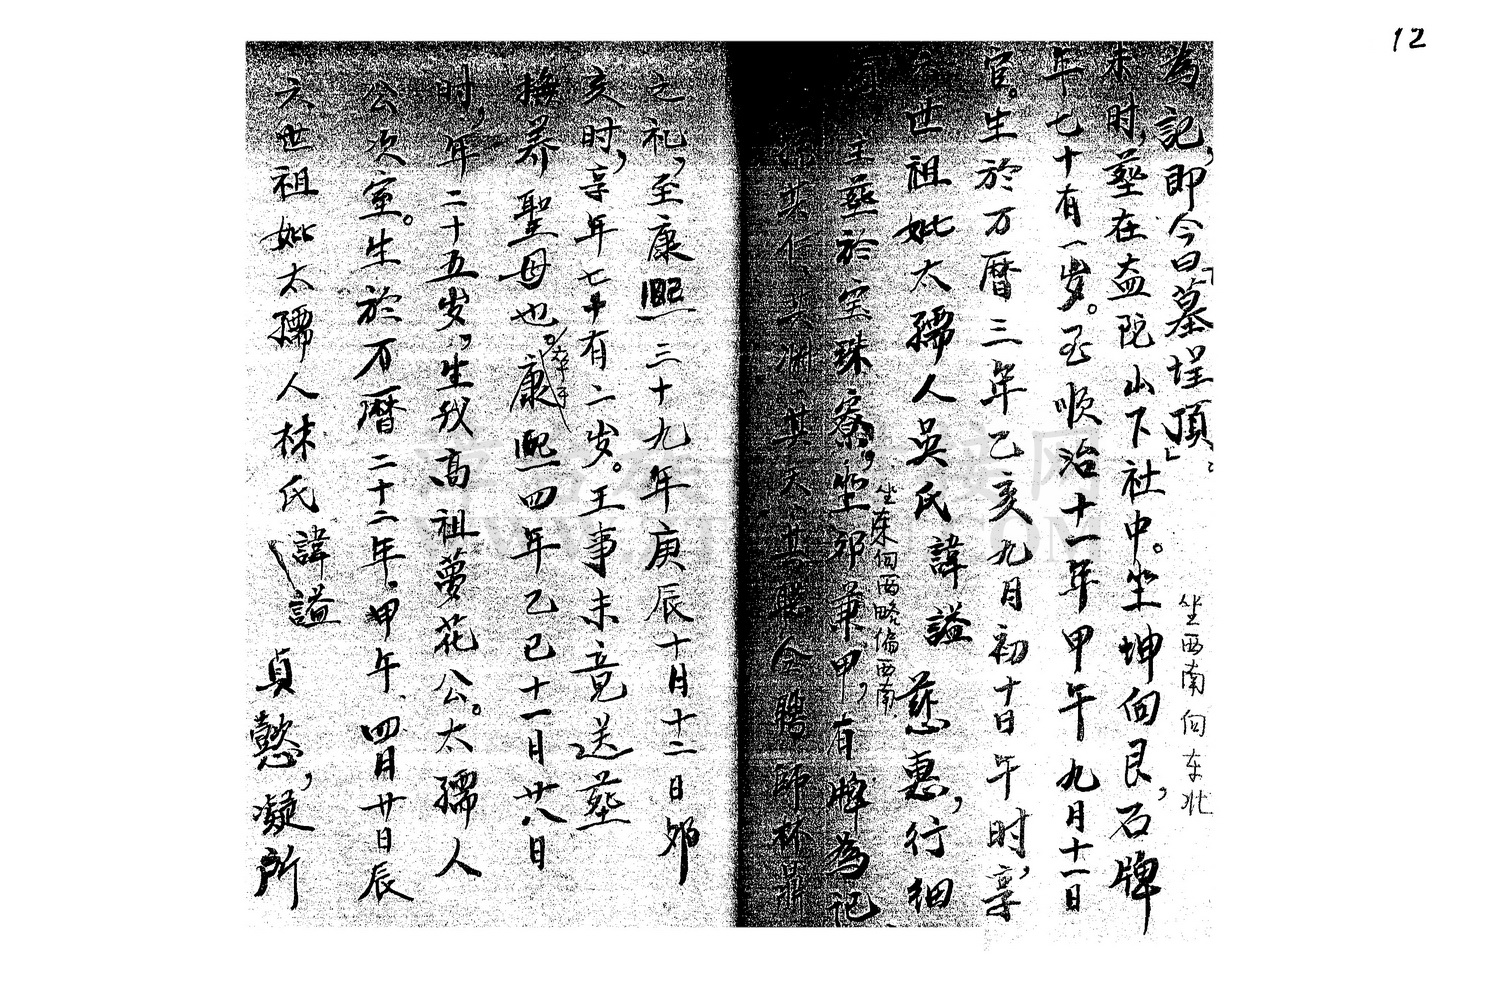 12
為記，即今曰「墓埕頂」。
未时，葬在孟陀山下社中。坐坤向艮，石牌
坐西南向东北
年七十有一岁。至順治十一年甲午九月十一日
官。生於万曆三年乙亥九月初十日午时，享
六世祖妣太孺人吳氏諱謚慈惠，行細
主葬於宝珠寮，坐卯兼甲，有牌為記
坐东向西略偏西南
其仁、其渊、其天、其聪仝聘師林鼎
之礼，至康熙三十九年庚辰十月十二日卯
亥时，享年七十有二岁。王事未竟送葬
撫养聖母也。康熙四年乙巳十一月廿八日
时，年二十五岁，生我高祖夢花公。太孺人
公次室。生於万曆二十二年。甲午、四月廿日辰
六世祖妣太孺人林氏諱謚貞懿，凝所